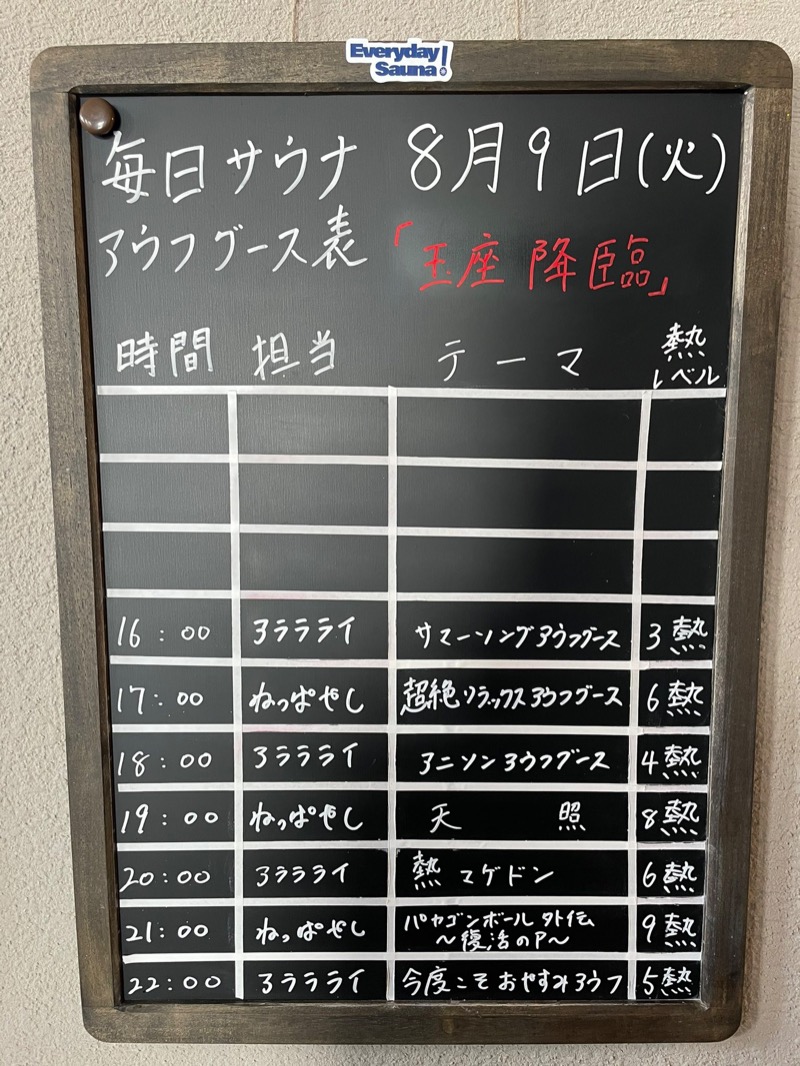 Everyday
Sauna!
毎日サウナ 8月9日(火)
アウフグース表 「玉座降臨」
時間 担当 テーマ 熱レベル
16:00 アラライ サマーソングアウフグース 3熱
17:00 ねっぱやし 超絶リラックスアウフグース 6熱
18:00 アララライ アニソンアウフグース 4熱
19:00 ねっぱやし 天照 8熱
20:00 アララライ 熱マゲドン 6熱
21:00 ねっぱやし パヤゴンボール外伝 9熱
～復活のP～
22:00 アララライ 今度こそおやすみアウフ 5熱